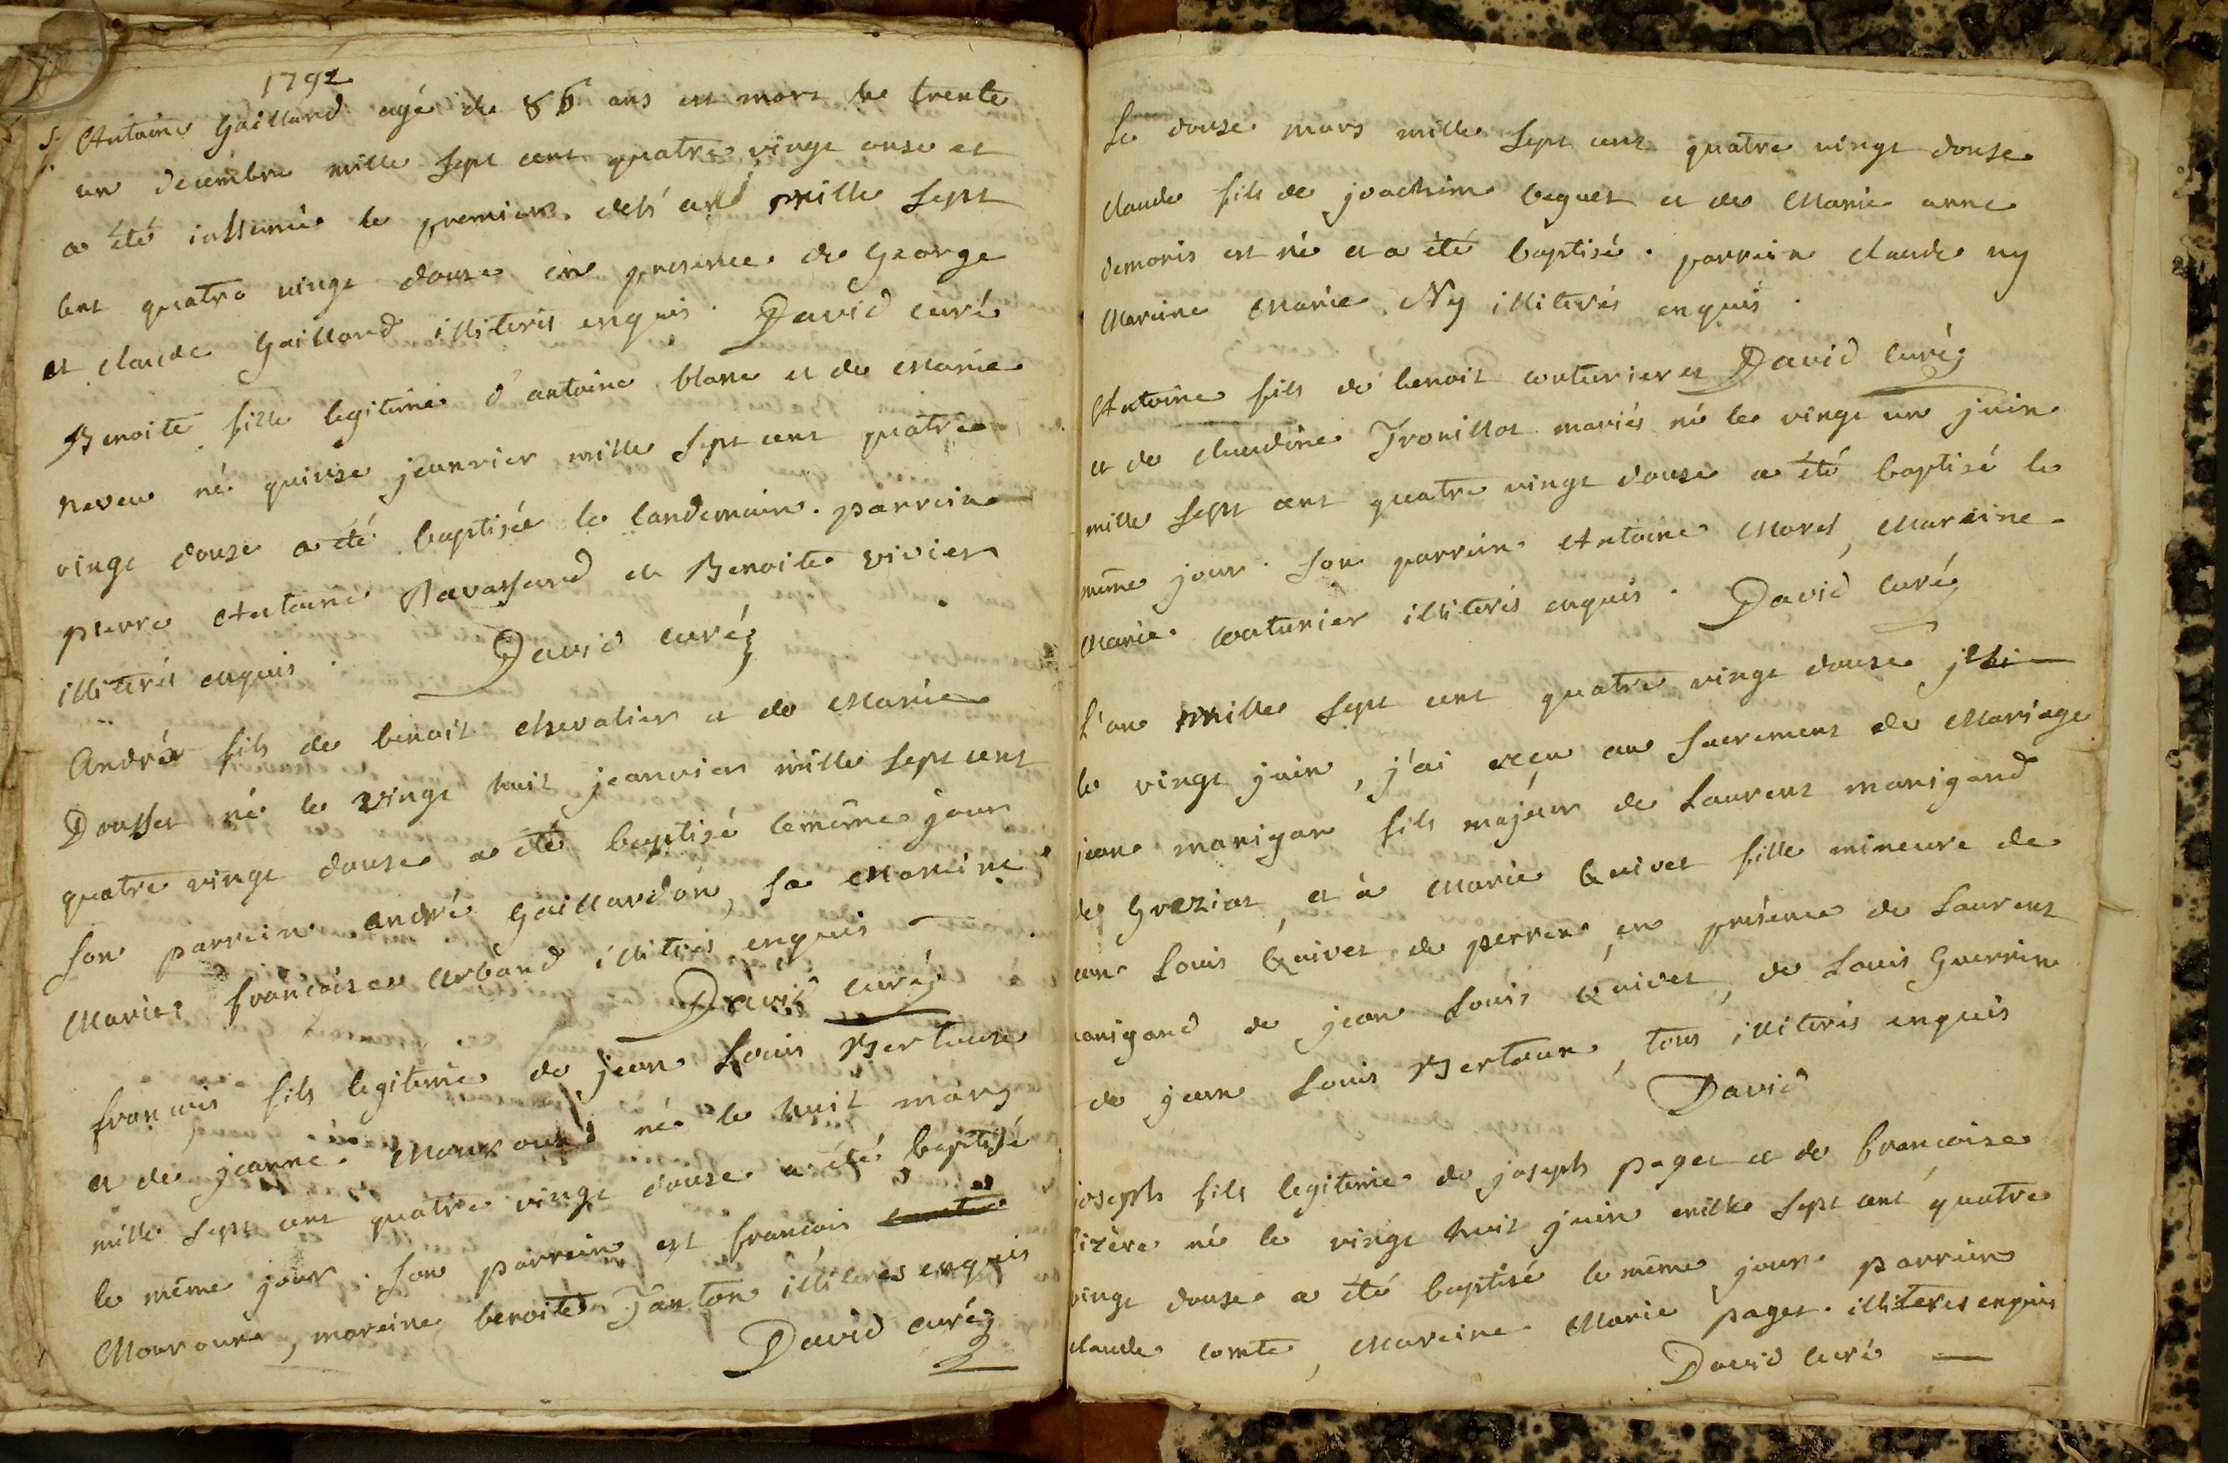 1792
S. Antoine Gaillard agé de 86 ans est mort le trente
un decembre mille sept cent quatre vingt onse et
a été inhumé le premier de l'an mille sept
cent quatre vingt douse en presence de George
et claude Gaillard illiterés enquis. David curé
Benoite fille legitime d'antoine blanc et de Marie
neveu né quinse jeanvier mille sept cent quatre
vingt douse a été baptisée le landemain. parrein
pierre Antoine Ravassard et Benoite vivier
illiterés enquis. David curé
André fils de benoit chevalier et de Marie
Dousset né le vingt huit jeanvier mille sept cent
quatre vingt douse a été baptisé le même jour
son parrein andré Gaillardon, sa Mareine
Marie françoise Arband illiterés enquis
David curé
françois fils legitime de jean Louis Bertoune
et de jeanne Mouroux né le huit mars
mille sept cent quatre vingt douse a été baptisé
le même jour. son parrein est francois
Mouroune, mareine benoite Janton illiteres enquis
David curé
Le douse mars mille sept cent quatre vingt douse
claude fils de joachim beguet et de Marie anne
demoris est né et a été baptisé. parrein claude ny
Mareine Marie Ny illiterés enquis.
David Curé
Antoine fils de benoit couturier et
et de claudine Trouillot mariés né le vingt un juin
mille sept cent quatre vingt douse a été baptisé le
même jour. son parrein Antoine Morel, Mareine
Marie couturier illiterés enquis. David Curé
L'an mille sept cent quatre vingt douse
le vingt juin, j'ai reçu au sacrement de Mariage
jean manigan fils majeur de Laurent manigand
de Graziat, et à Marie Quivet fille mineure de
jean Louis Quivet de perren en présence de Laurent
manigand de jean Louis Quivet, de Louis Guerrin
de jean Louis Bertoun, tous illiterés enquis
David
joseph fils legitime de joseph paget et de françoise
lizère né le vingt huit juin mille sept cent quatre
vingt douse a été baptisé le même jour parrein
claude comte, Mareine Marie paget. illiteres enquis
David Curé